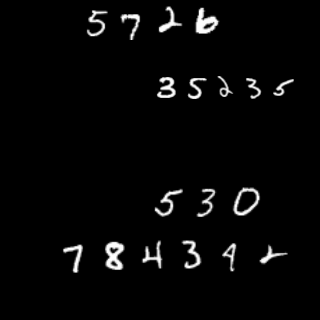 5726
35235
530
784392